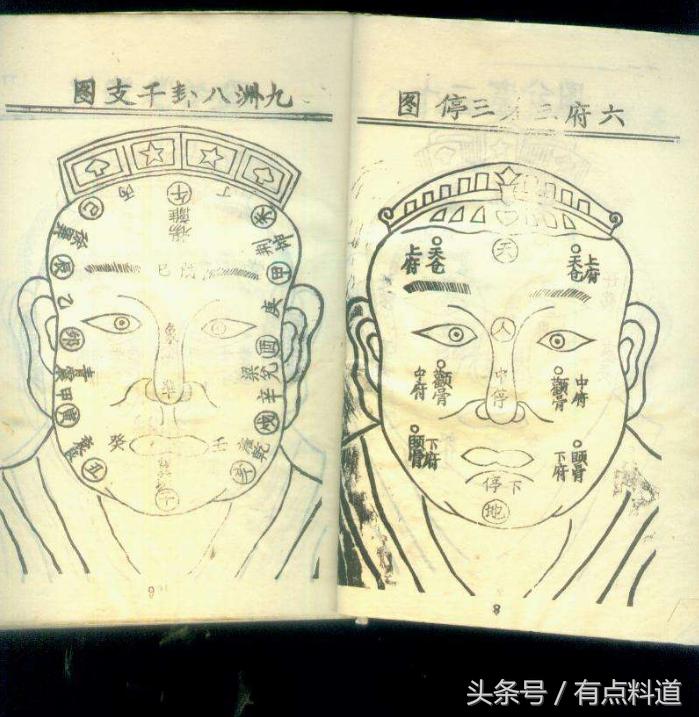 六府三才三停图
天
上府
天仓
天仓
上府
人
中停
中府
顴骨
顴骨
中府
頤骨
下府
頤骨
下府
下停
地
8
九洲八卦干支图
巳
丙
午
丁
未
離
坤
荆
辰
甲
乙
庚
卯
酉
兑
辛
青
甲
寅
癸
壬
乾
丑
9
头条号 / 有点料道